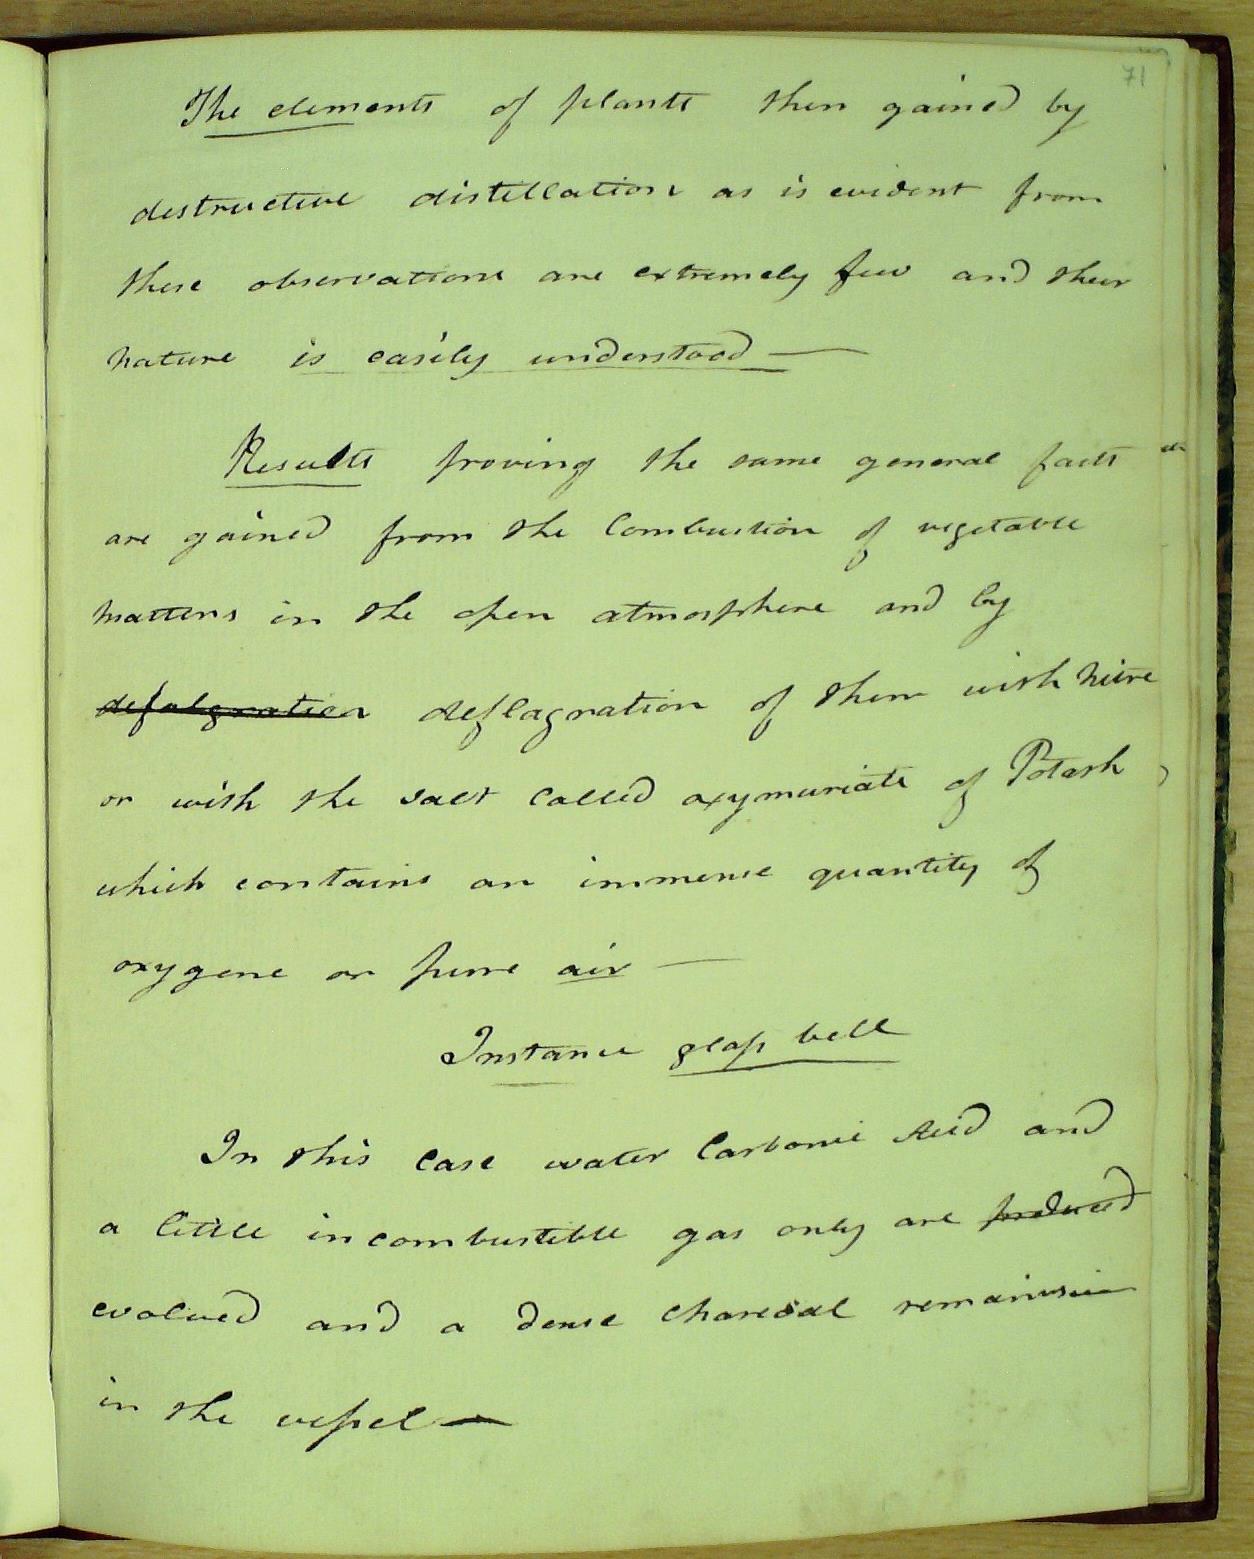 71
The elements of plants then gained by
destructive distillation as is evident from
these observations are extremely few and their
nature is easily understood —
Results proving the same general facts
are gained from the Combustion of vegetable
matters in the open atmosphere and by
defalgration deflagration of them with nitre
or with the salt called oxymuriate of Potash
which contains an immense quantity of
oxygene or pure air —
Instance glass bell
In this case water Carbonic Acid and
a little incombustible gas only are produced
evolved and a dense charcoal remains
in the vessel —